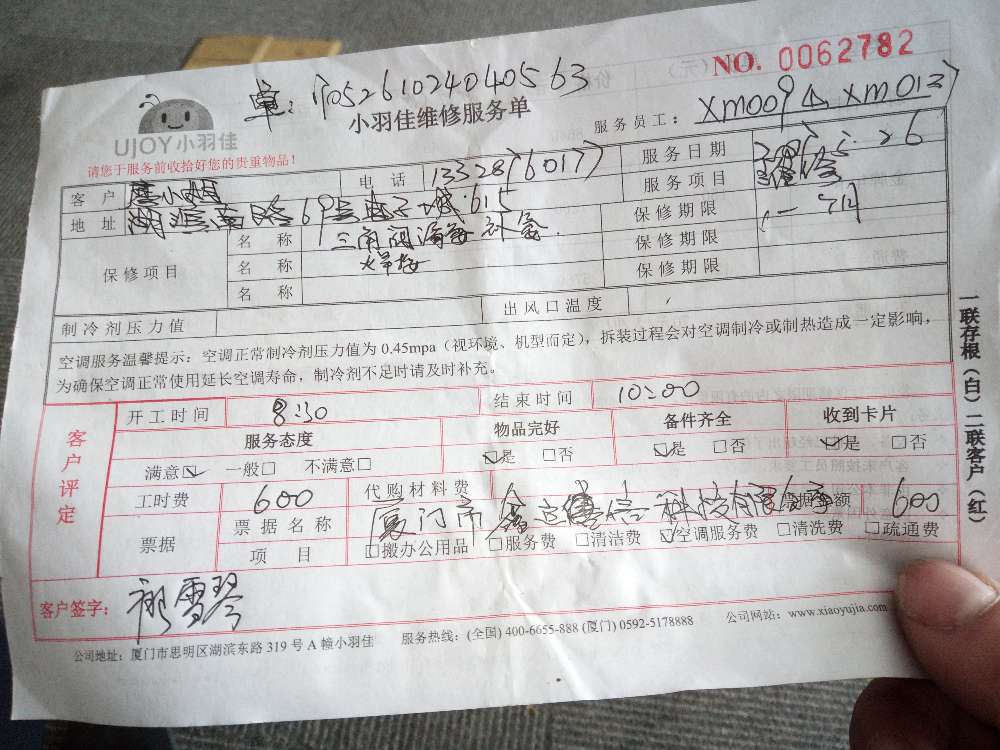 NO. 0062782
单:
小羽佳维修服务单
UJOY小羽佳
服务员工: XM009
请您于服务前收拾好您的贵重物品!
客户 小姐 电话 服务日期
地址 湖滨南路69号电子城615 服务项目 维修
保修项目 名称 三角阀漏 保修期限
名称 焊接 保修期限
名称 保修期限
制冷剂压力值 出风口温度
空调服务温馨提示:空调正常制冷剂压力值为 0.45mpa(视环境、机型而定),拆装过程会对空调制冷或制热造成一定影响,
为确保空调正常使用延长空调寿命,制冷剂不足时请及时补充。
一联存根(白)二联客户(红)
客户评定
开工时间 8:30 结束时间 10:00
服务态度 物品完好 备件齐全 收到卡片
满意☑ 一般□ 不满意□ ☑是 □否 ☑是 □否 ☑是 □否
工时费 600 代购材料费 票据金额 600
票据 票据名称 厦门市鑫 信科技有限公司
项目 □搬办公用品 □服务费 □清洁费 ☑空调服务费 □清洗费 □疏通费
客户签字: 雪琴
公司地址:厦门市思明区湖滨东路 319 号 A 幢小羽佳 服务热线:(全国) 400-6655-888 (厦门) 0592-5178888 公司网站:www.xiaoyujia.com